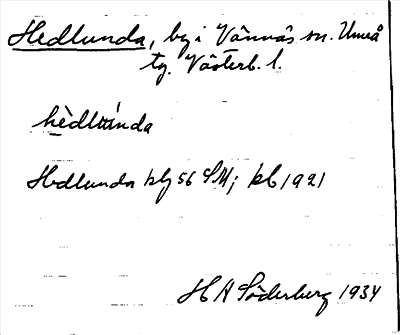 Hedlunda, by i Vännäs sn. Umeå
tg. Västerb. l.
hèdlúnda
Hedlunda kbg 56 SM; kb 1921
H A Söderberg 1934